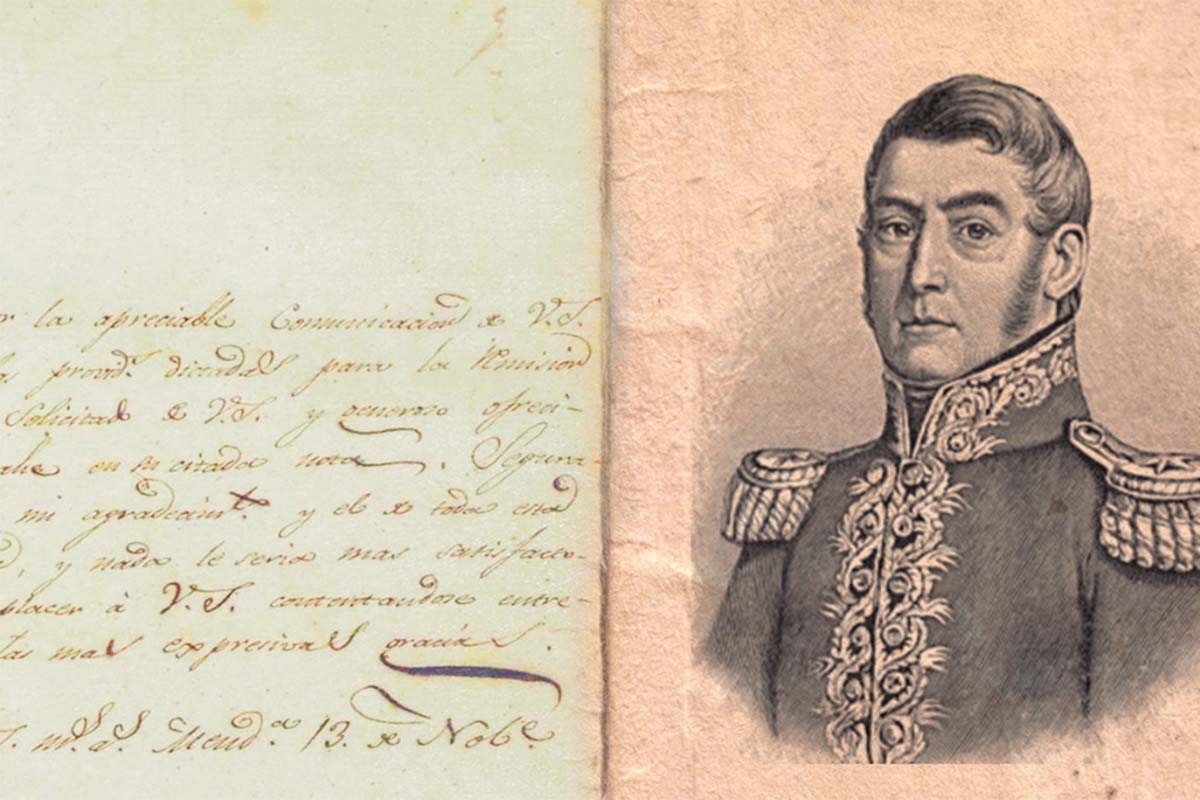 r la apreciable Comunicacion de V.S.
as provid.s dictadas para la remision
Solicitad de V.S. y generoso ofreci-
en su citada nota. Segura-
mi agradecim.to y el de toda esta
, y nada le seria mas satisfacto-
placer à V.S. contentandose entre-
tas mas expresivas gracias.
S. m.s a.s Mend.a 13. de Nob.e